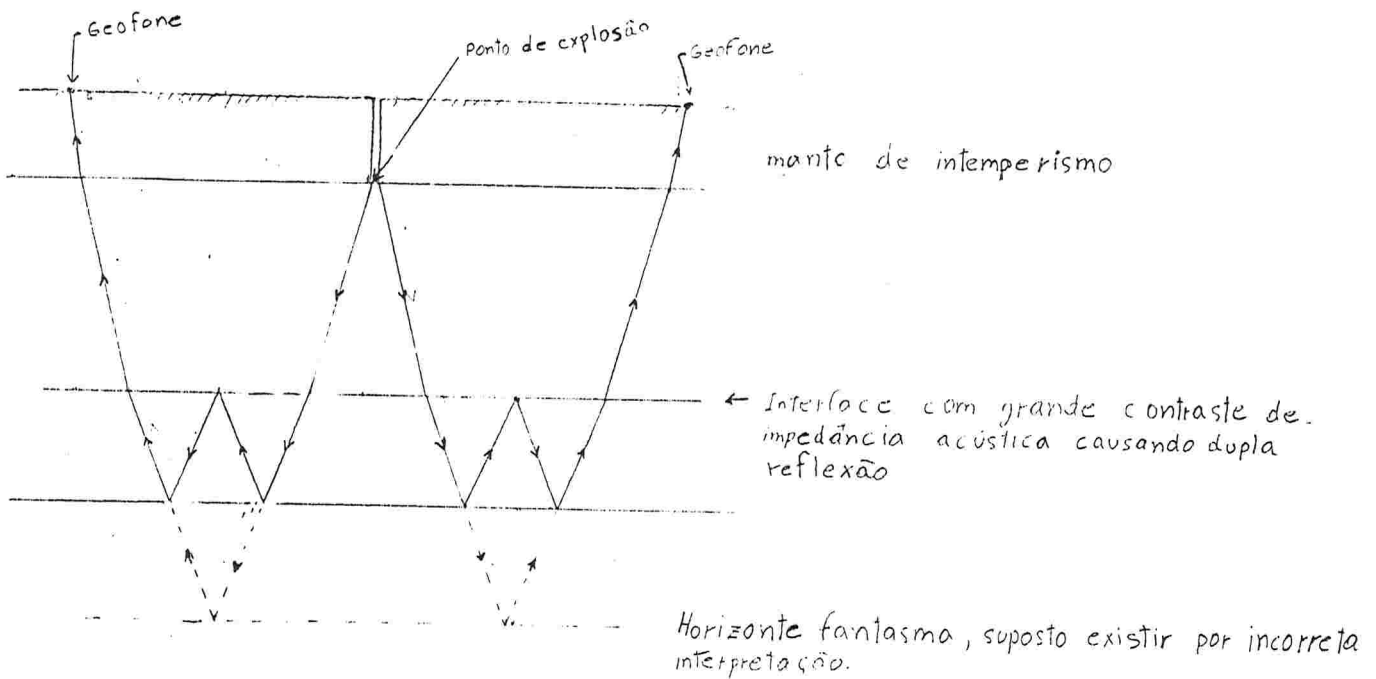 Geofone
Ponto de explosão
Geofone
manto de intemperismo
← Interface com grande contraste de
impedância acústica causando dupla
reflexão
Horizonte fantasma, suposto existir por incorreta
interpretação.